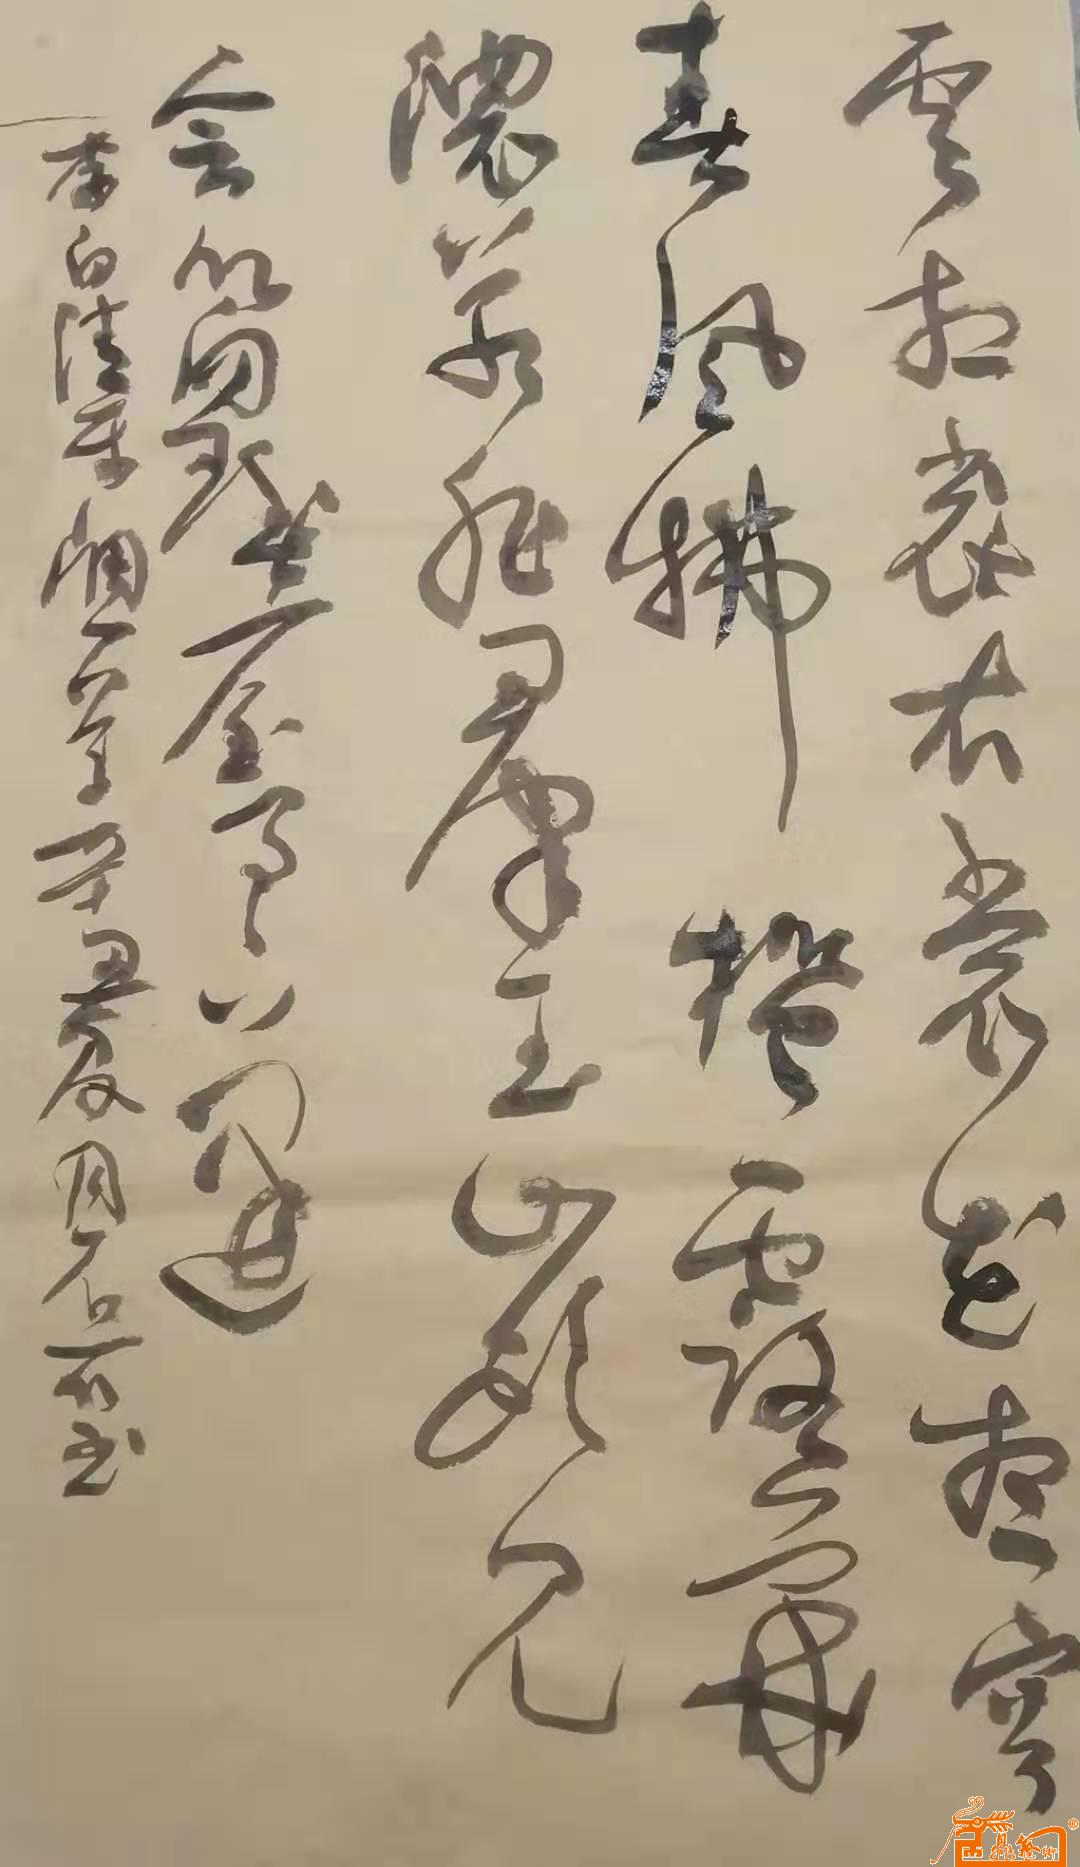 雲想衣裳花想容
春風拂檻露華
濃若非羣玉山頭見
會向瑤臺月下逢
李白清平調一首辛丑夏周石書